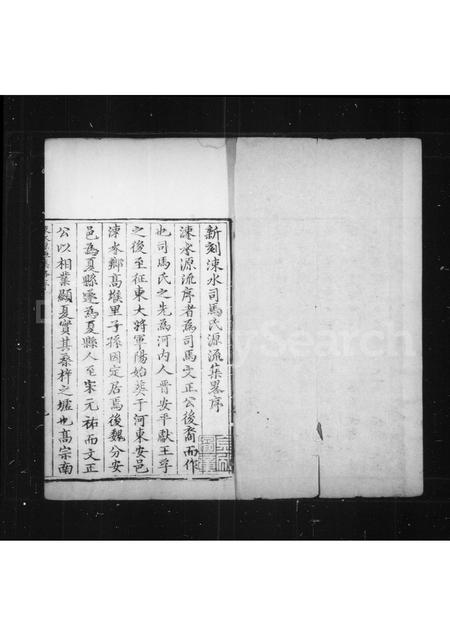 新刻涑水司馬氏源流集畧序
涑水源流序者為司馬文正公後裔而作
也司馬氏之先為河內人晋安平獻王孚
之後至征東大將軍陽始葬于河東安邑
涑水鄉高堠里子孫因定居焉後魏分安
邑為夏縣遂為夏縣人至宋元祐而文正
公以相業顯夏實其桑梓之墟也高宗南